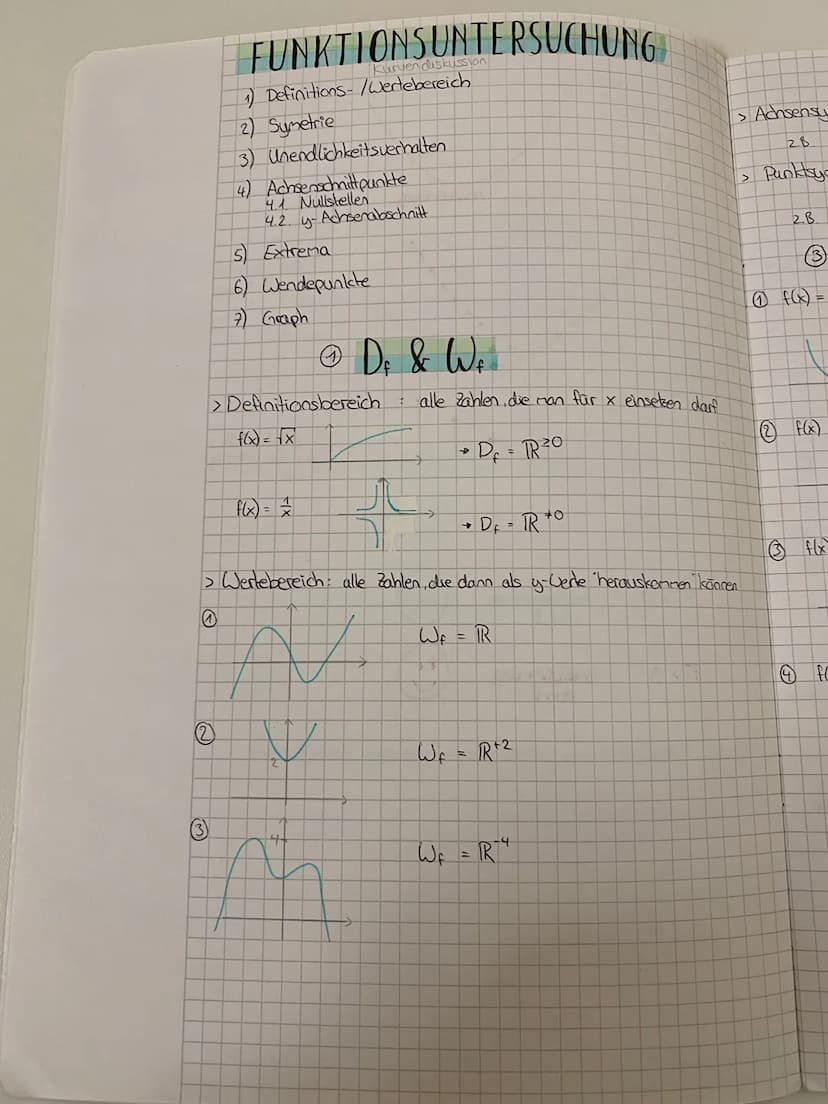 FUNKTIONSUNTERSUCHUNG
Kurvendiskussion
1) Definitions-/Wertebereich
2) Symetrie
3) Unendlichkeitsverhalten
4) Achsenschnittpunkte
4.1 Nullstellen
4.2. y-Achsenabschnitt
5) Extrema
6) Wendepunkte
7) Graph
① Df & Wf
> Definitionsbereich : alle Zahlen, die man für x einsetzen darf
f(x) = √x → Df = ℝ≥0
f(x) = 1/x → Df = ℝ≠0
> Wertebereich: alle Zahlen, die dann als y-Werte "herauskommen" können
① Wf = ℝ
② 2 Wf = ℝ+2
③ 4 Wf = ℝ-4
> Achsensy
z.B.
> Punktsy
z.B
③
① f(x) =
② f(x)
③ f(x
④ f(